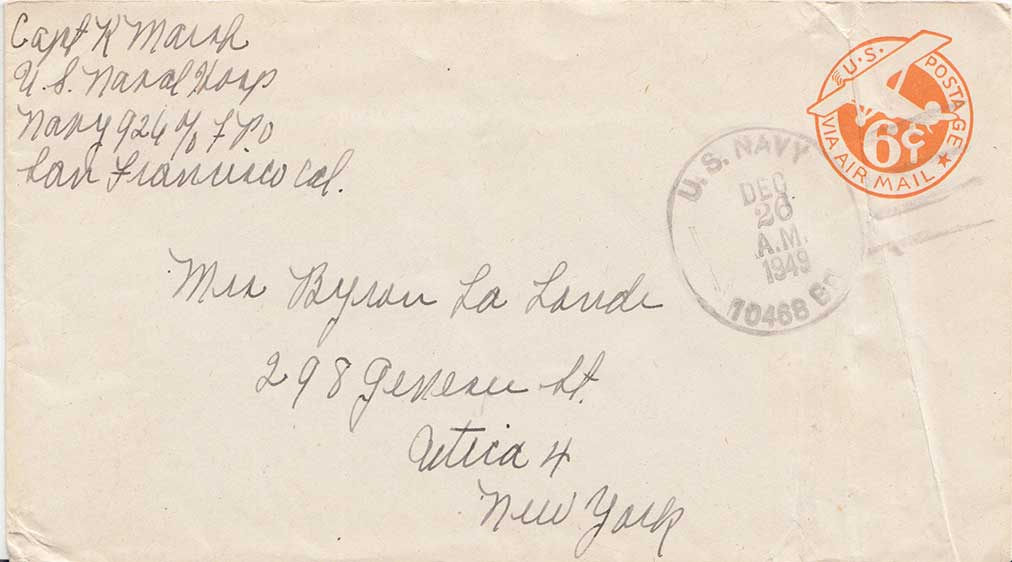 Capt K Marsh
U. S. Naval Hosp
Navy 926 c/o F P O
San Francisco Cal.
U.S. POSTAGE
VIA AIR MAIL
6¢
U. S. NAVY
DEC
26
A.M.
1949
10468
Mrs Byron La Londe
298 Genesee St.
Utica 4
New York